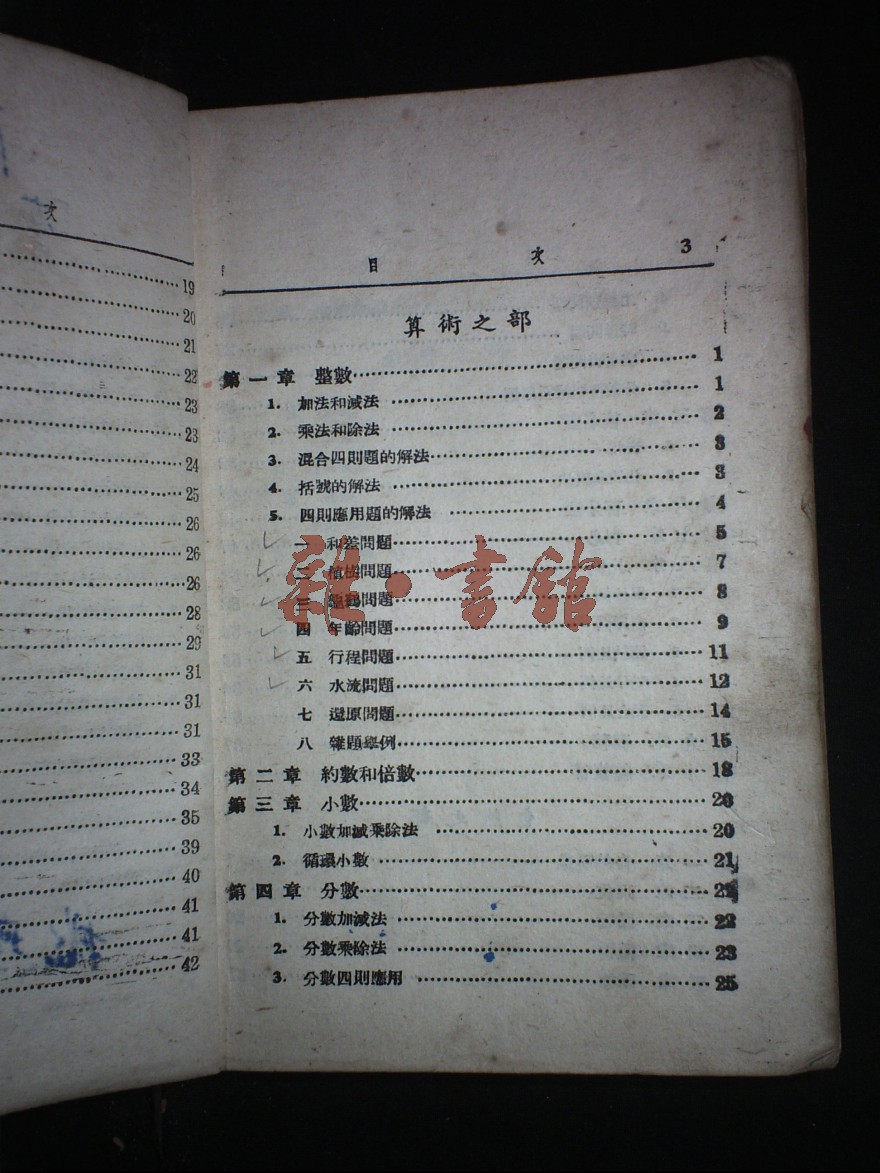 次
19
20
21
22
23
23
24
25
26
26
26
28
29
31
31
31
33
34
35
39
40
41
41
42
目 次 3
算術之部
第一章 整數 1
1. 加法和減法 1
2. 乘法和除法 2
3. 混合四則題的解法 3
4. 括號的解法 3
5. 四則應用題的解法 4
一 和差問題 5
二 植樹問題 7
三 鷄問題 8
四 年齡問題 9
五 行程問題 11
六 水流問題 12
七 還原問題 14
八 雜題舉例 15
第二章 約數和倍數 18
第三章 小數 20
1. 小數加減乘除法 20
2. 循環小數 21
第四章 分數 22
1. 分數加減法 22
2. 分數乘除法 23
3. 分數四則應用 25
雜·書館